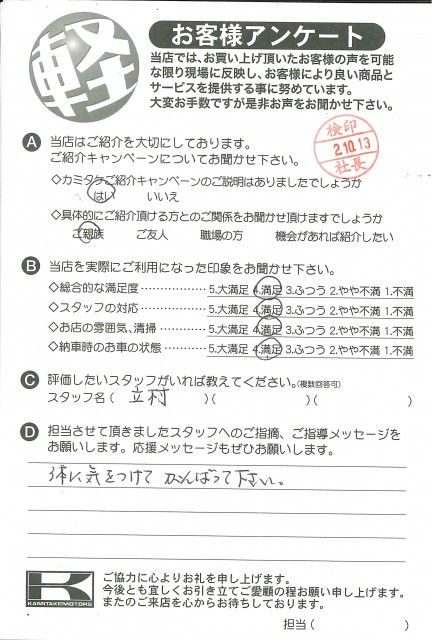 軽
お客様アンケート
当店では、お買い上げ頂いたお客様の声を可能
な限り現場に反映し、お客様により良い商品と
サービスを提供する事に努めています。
大変お手数ですが是非お声をお聞かせ下さい。
検印
2 10.13
社長
A 当店はご紹介を大切にしております。
ご紹介キャンペーンについてお聞かせ下さい。
◇カミタケご紹介キャンペーンのご説明はありましたでしょうか
はい いいえ
◇具体的にご紹介頂ける方とのご関係をお聞かせ頂けますでしょうか
ご親族 ご友人 職場の方 機会があれば紹介したい
B 当店を実際にご利用になった印象をお聞かせ下さい。
◇総合的な満足度 ・・・・・・・・・・・・・ 5.大満足 4.満足 3.ふつう 2.やや不満 1.不満
◇スタッフの対応 ・・・・・・・・・・・・・ 5.大満足 4.満足 3.ふつう 2.やや不満 1.不満
◇お店の雰囲気、清掃 ・・・・・・・・ 5.大満足 4.満足 3.ふつう 2.やや不満 1.不満
◇納車時のお車の状態 ・・・・・・・・ 5.大満足 4.満足 3.ふつう 2.やや不満 1.不満
C 評価したいスタッフがいれば教えてください。(複数回答可)
スタッフ名 ( 立村 )( )( )
D 担当させて頂きましたスタッフへのご指摘、ご指導メッセージを
お願いします。応援メッセージもぜひお願いします。
体に気をつけて がんばって下さい。
K
KAMITAKE MOTORS
ご協力に心よりお礼を申し上げます。
今後とも宜しくお引き立てご愛顧の程お願い申し上げます。
またのご来店を心からお待ちしております。
担当 ( )